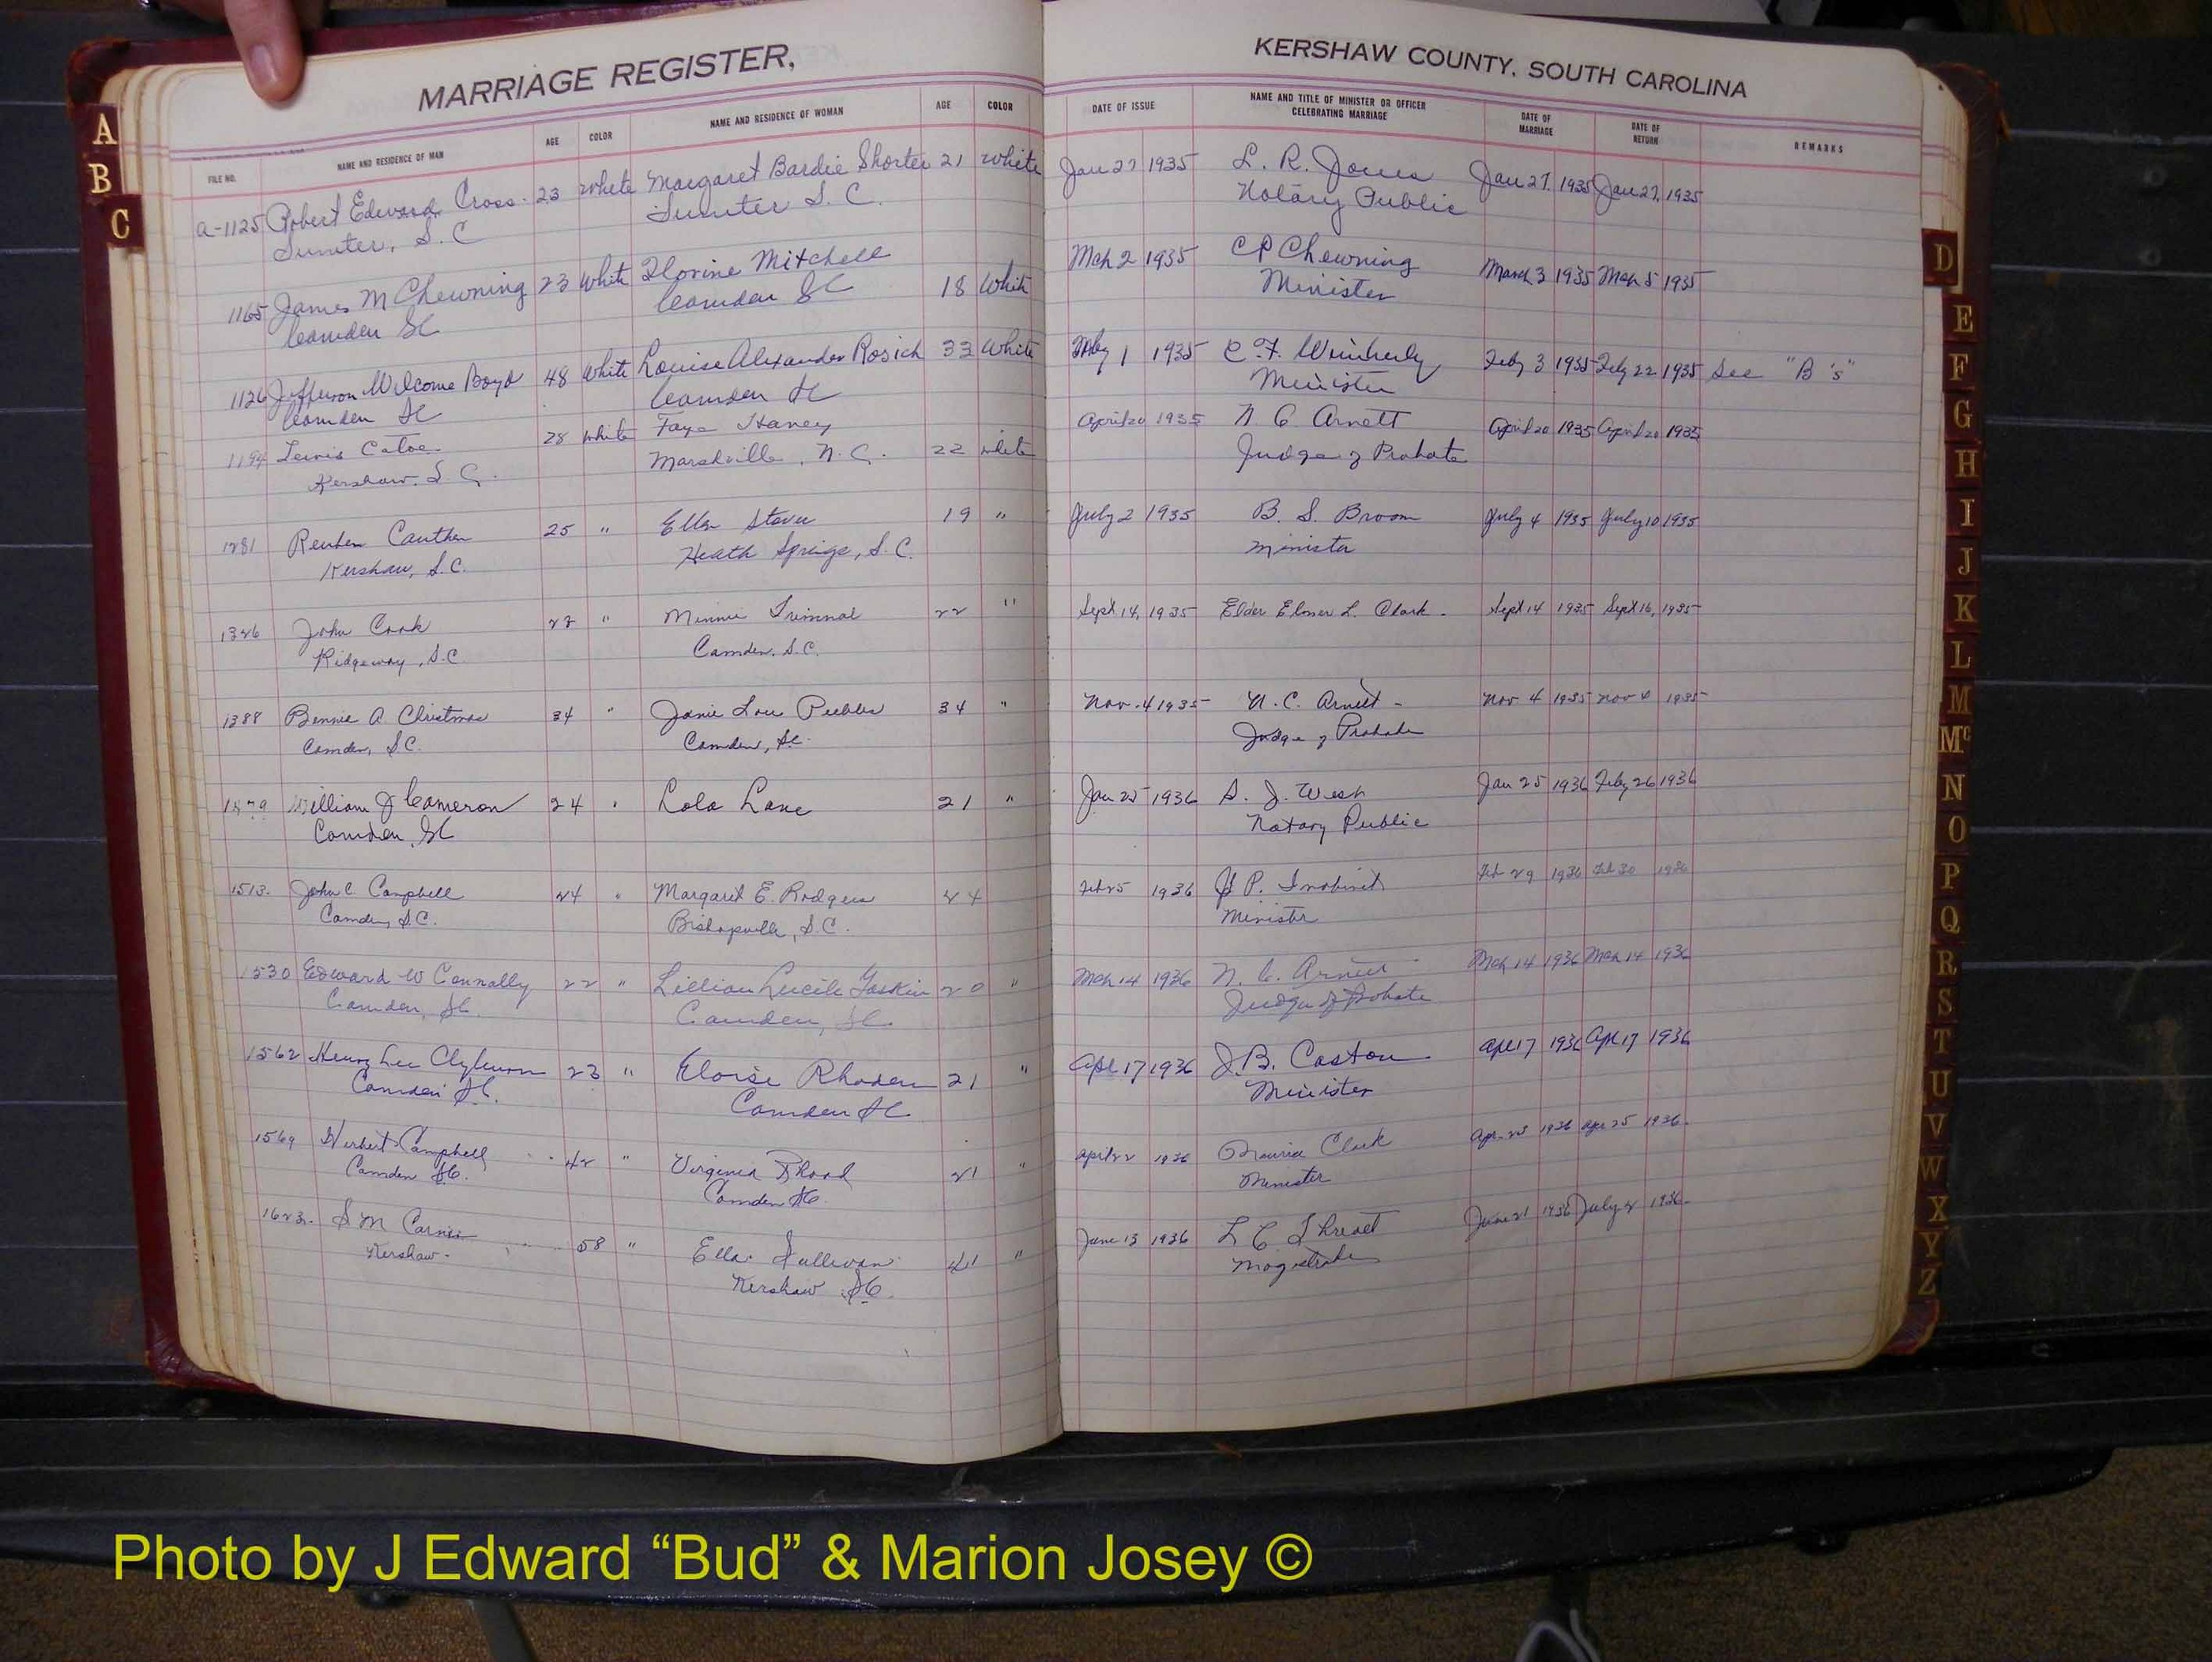 MARRIAGE REGISTER,
KERSHAW COUNTY, SOUTH CAROLINA
FILE NO. NAME AND RESIDENCE OF MAN AGE COLOR NAME AND RESIDENCE OF WOMAN AGE COLOR DATE OF ISSUE NAME AND TITLE OF MINISTER OR OFFICER CELEBRATING MARRIAGE DATE OF MARRIAGE DATE OF RETURN REMARKS
a-1125 Robert Edward Cross 23 White Margaret Bardie Shorter 21 White Jan 27 1935 L. R. Jones Jan 27, 1935 Jan 27, 1935
Sumter, S. C Sumter S. C. Notary Public
1165 James M Chewning 23 White Florine Mitchell 18 White Mch 2 1935 C P Chewning March 3 1935 Mch 5 1935
Camden SC Camden SC Minister
1126 Jefferson Welcome Boyd 48 White Louise Alexander Rosich 33 White 1 1935 C. F. Wimberly Feby 3 1935 Feby 22 1935 See "B's"
Camden SC Camden SC Minister
1194 Lewis Catoe 28 White Faye Haney 22 white April 20 1935 N C Arnett April 20 1935 April 20 1935
Kershaw, S C. Marshville, N. C. Judge of Probate
1281 Reuben Cauthen 25 " Ellen 19 " July 2 1935 B. S. Broom July 4 1935 July 10 1935
Kershaw, S.C. Heath Springs, S.C. Minister
1326 John Cook " Minnie Trimnal 22 " Sept 14, 1935 Elder Elmer L. Clark. Sept 14 1935 Sept 16, 1935
Ridgeway, S.C Camden, S.C.
1388 Bennie A Christmas 34 " Janie Lou Peebles 34 " Nov. 4 1935 N. C. Arnett Nov 4 1935 Nov 1935
Camden, S.C. Camden, S.C. Judge of Probate
William J Cameron 24 " Lola Lane 21 " Jan 25 1936 S. J. West Jan 25 1936 Feby 26 1936
Camden, SC Notary Public
1513. John C. Campbell 24 " Margaret E. Rodgers 24 Feb 25 1936 P. Feb 29 1936 Feb 30 1936
Camden, S.C. Bishopville, S.C. Minister
1530 Edward W Connally 22 " Lillian Lucile Gaskin 20 " Mch 14 1936 N. C. Arnett Mch 14 1936 Mch 14 1936
Camden, SC. Camden, SC. Judge of Probate
1562 Henry Lee Clyburn 23 " Eloise Rhoden 21 " Apl 17 1936 J. B. Caston Apl 17 1936 Apl 17 1936
Camden S.C. Camden SC. Minister
1569 Herbert Campbell 42 " Virginia Rhoad 21 " April 22 1936 Clark Apr. 23 1936 Apr 25 1936.
Camden SC. Camden SC. Minister
1623. S M 58 " Ella Sullivan 41 " June 13 1936 L C Threatt June 21 1936 July 1936.
Kershaw. Kershaw SC. Magistrate
A
B
C
D
E
F
G
H
I
J
K
L
M
Mc
N
O
P
Q
R
S
T
U
V
W
X
Y
Z
Photo by J Edward “Bud” & Marion Josey ©